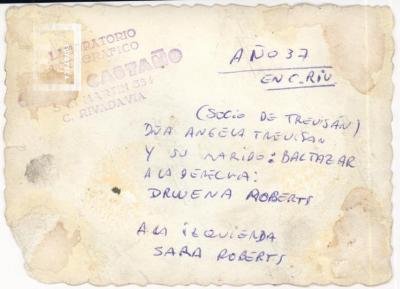 LABORATORIO
FOTOGRÁFICO
CASTAÑO
SAN MARTIN 394
C. RIVADAVIA
AÑO 37
EN C. RIV.
(SOCIO DE TREVISÁN)
DÑA ANGELA TREVISAN
Y SU MARIDO: BALTAZAR
A LA DERECHA:
DRWENA ROBERTS
A LA IZQUIERDA
SARA ROBERTS